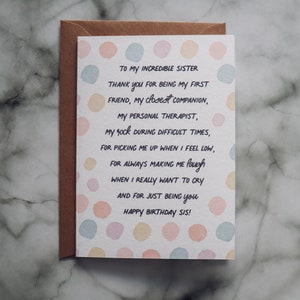 TO MY INCREDIBLE SISTER
THANK YOU FOR BEING MY FIRST
FRIEND, MY closest COMPANION,
MY PERSONAL THERAPIST,
MY rock DURING DIFFICULT TIMES,
FOR PICKING ME UP WHEN I FEEL LOW,
FOR ALWAYS MAKING ME laugh
WHEN I REALLY WANT TO CRY
AND FOR JUST BEING you
HAPPY BIRTHDAY SIS!